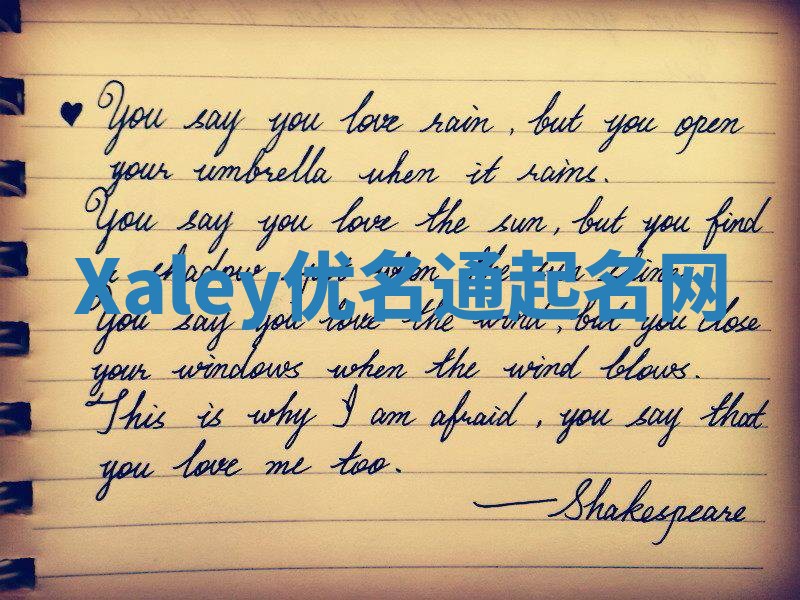 ♥ You say you love rain, but you open
your umbrella when it rains.
You say you love the sun, but you find
a shadow spot when the sun shines.
Xaley优名通起名网
You say you love the wind, but you close
your windows when the wind blows.
This is why I am afraid, you say that
you love me too.
—Shakespeare